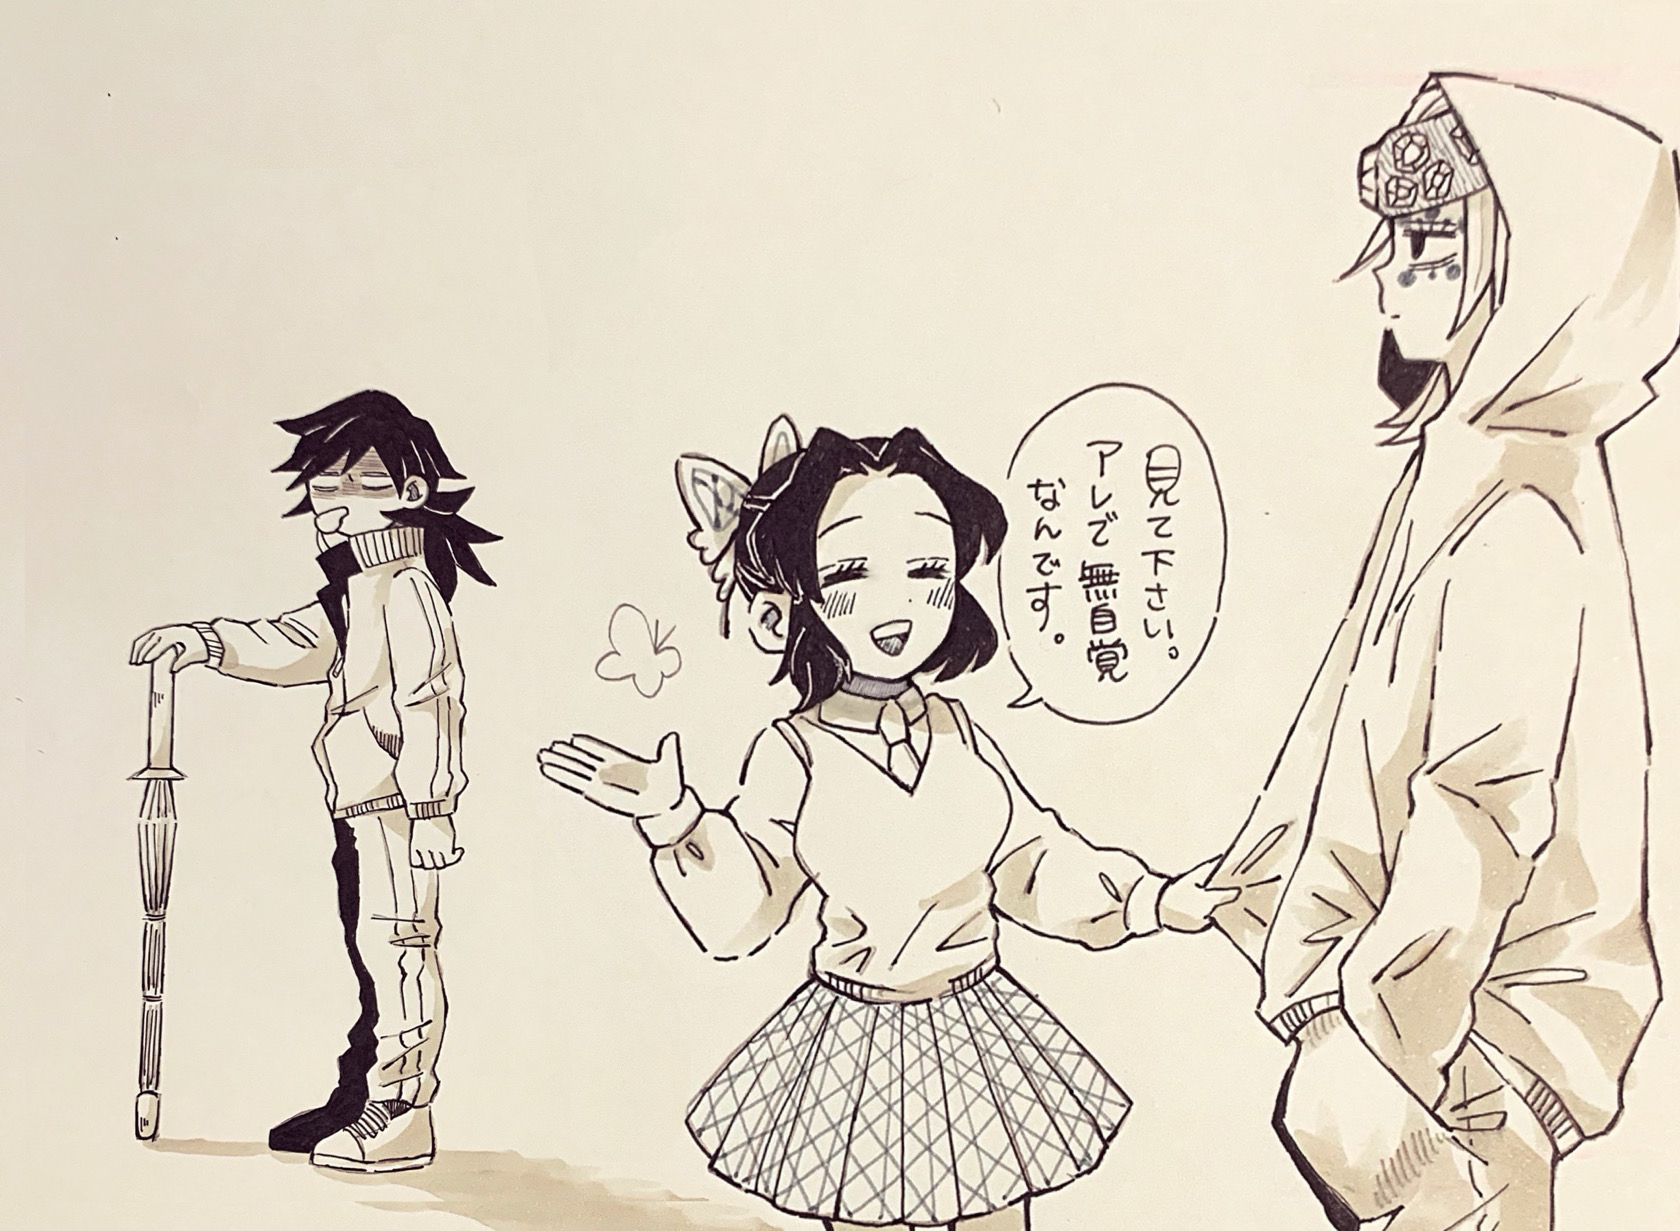 見て下さい。
アレで無自覚
なんです。